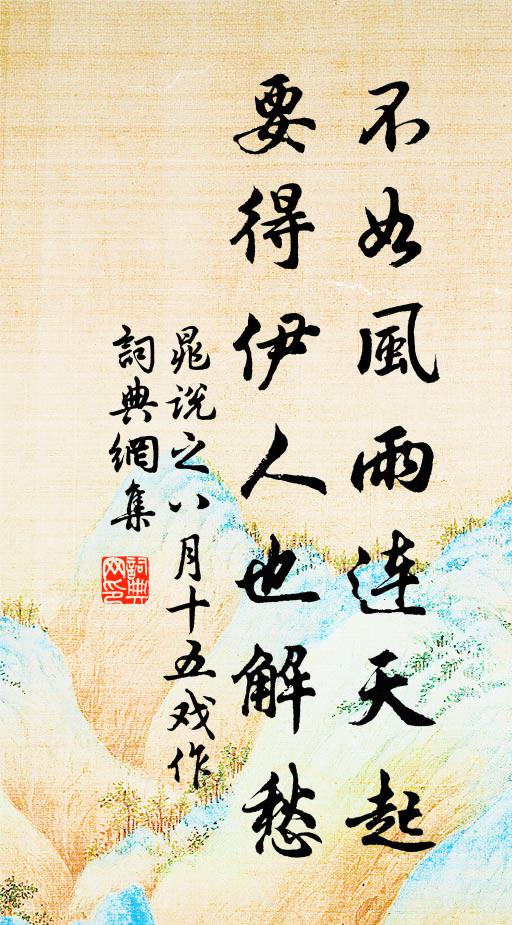 不如風雨连天起
要得伊人也解愁
晁说之八月十五戏作
詞典網集
詞典网印